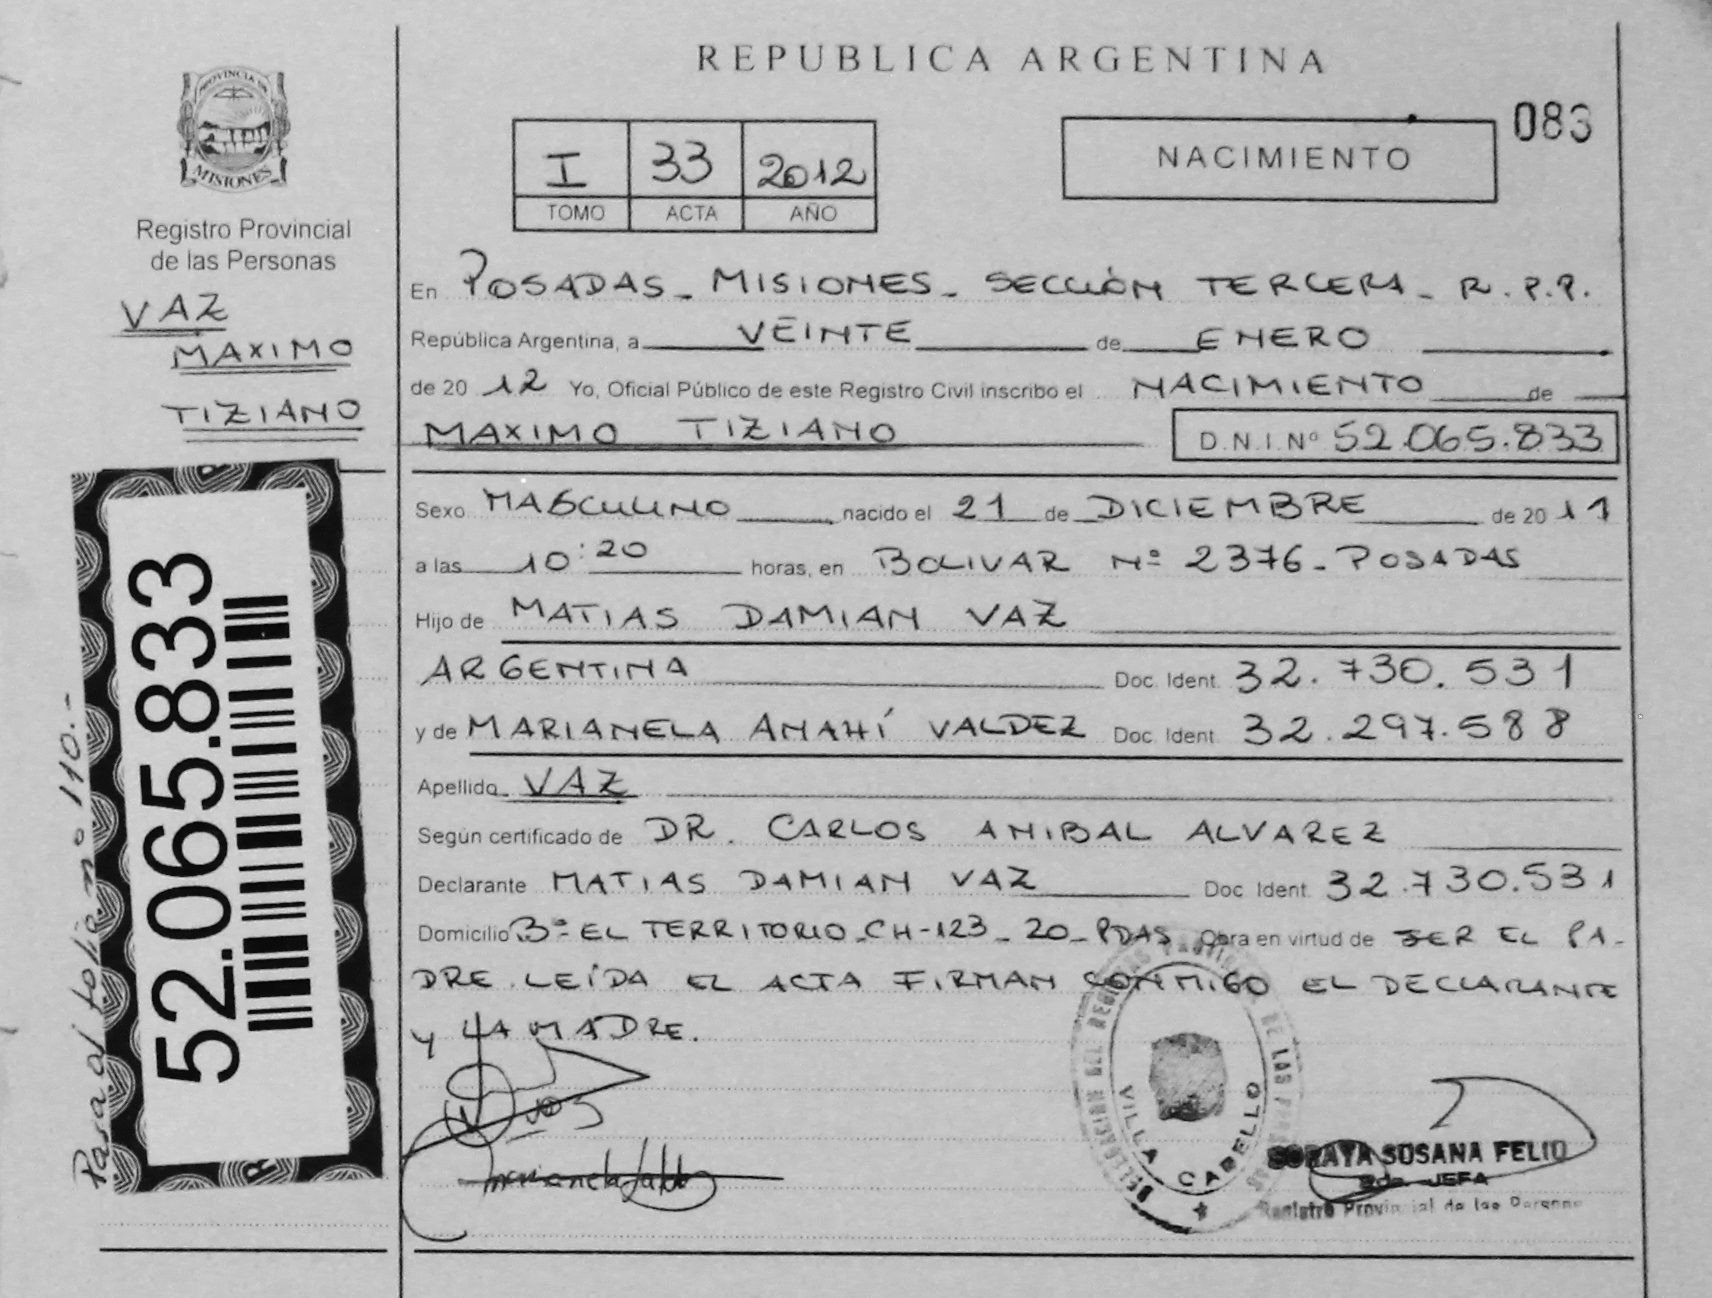 REPUBLICA ARGENTINA
083
NACIMIENTO
I 33 2012
TOMO ACTA AÑO
PROVINCIA DE
MISIONES
Registro Provincial
de las Personas
VAZ
MAXIMO
TIZIANO
52.065.833
Pasa al folio nº 110.-
En POSADAS_MISIONES_SECCIÓN TERCERA_R.P.P.
República Argentina, a VEINTE de ENERO
de 2012 Yo, Oficial Público de este Registro Civil inscribo el NACIMIENTO de
MAXIMO TIZIANO D.N.I.Nº 52.065.833
Sexo MASCULINO nacido el 21 de DICIEMBRE de 2011
a las 10:20 horas, en BOLIVAR Nº 2376_POSADAS
Hijo de MATIAS DAMIAN VAZ
ARGENTINA Doc. Ident. 32.730.531
y de MARIANELA ANAHÍ VALDEZ Doc. Ident. 32.297.588
Apellido VAZ
Según certificado de DR. CARLOS ANIBAL ALVAREZ
Declarante MATIAS DAMIAN VAZ Doc. Ident. 32.730.531
Domicilio Bº EL TERRITORIO_CH-123_20_PDAS. Obra en virtud de SER EL PA-
DRE. LEÍDA EL ACTA FIRMAN CONMIGO EL DECLARANTE
y LA MADRE.
VILLA CABELLO
SORAYA SUSANA FELIU
JEFA
Registro Provincial de las Personas